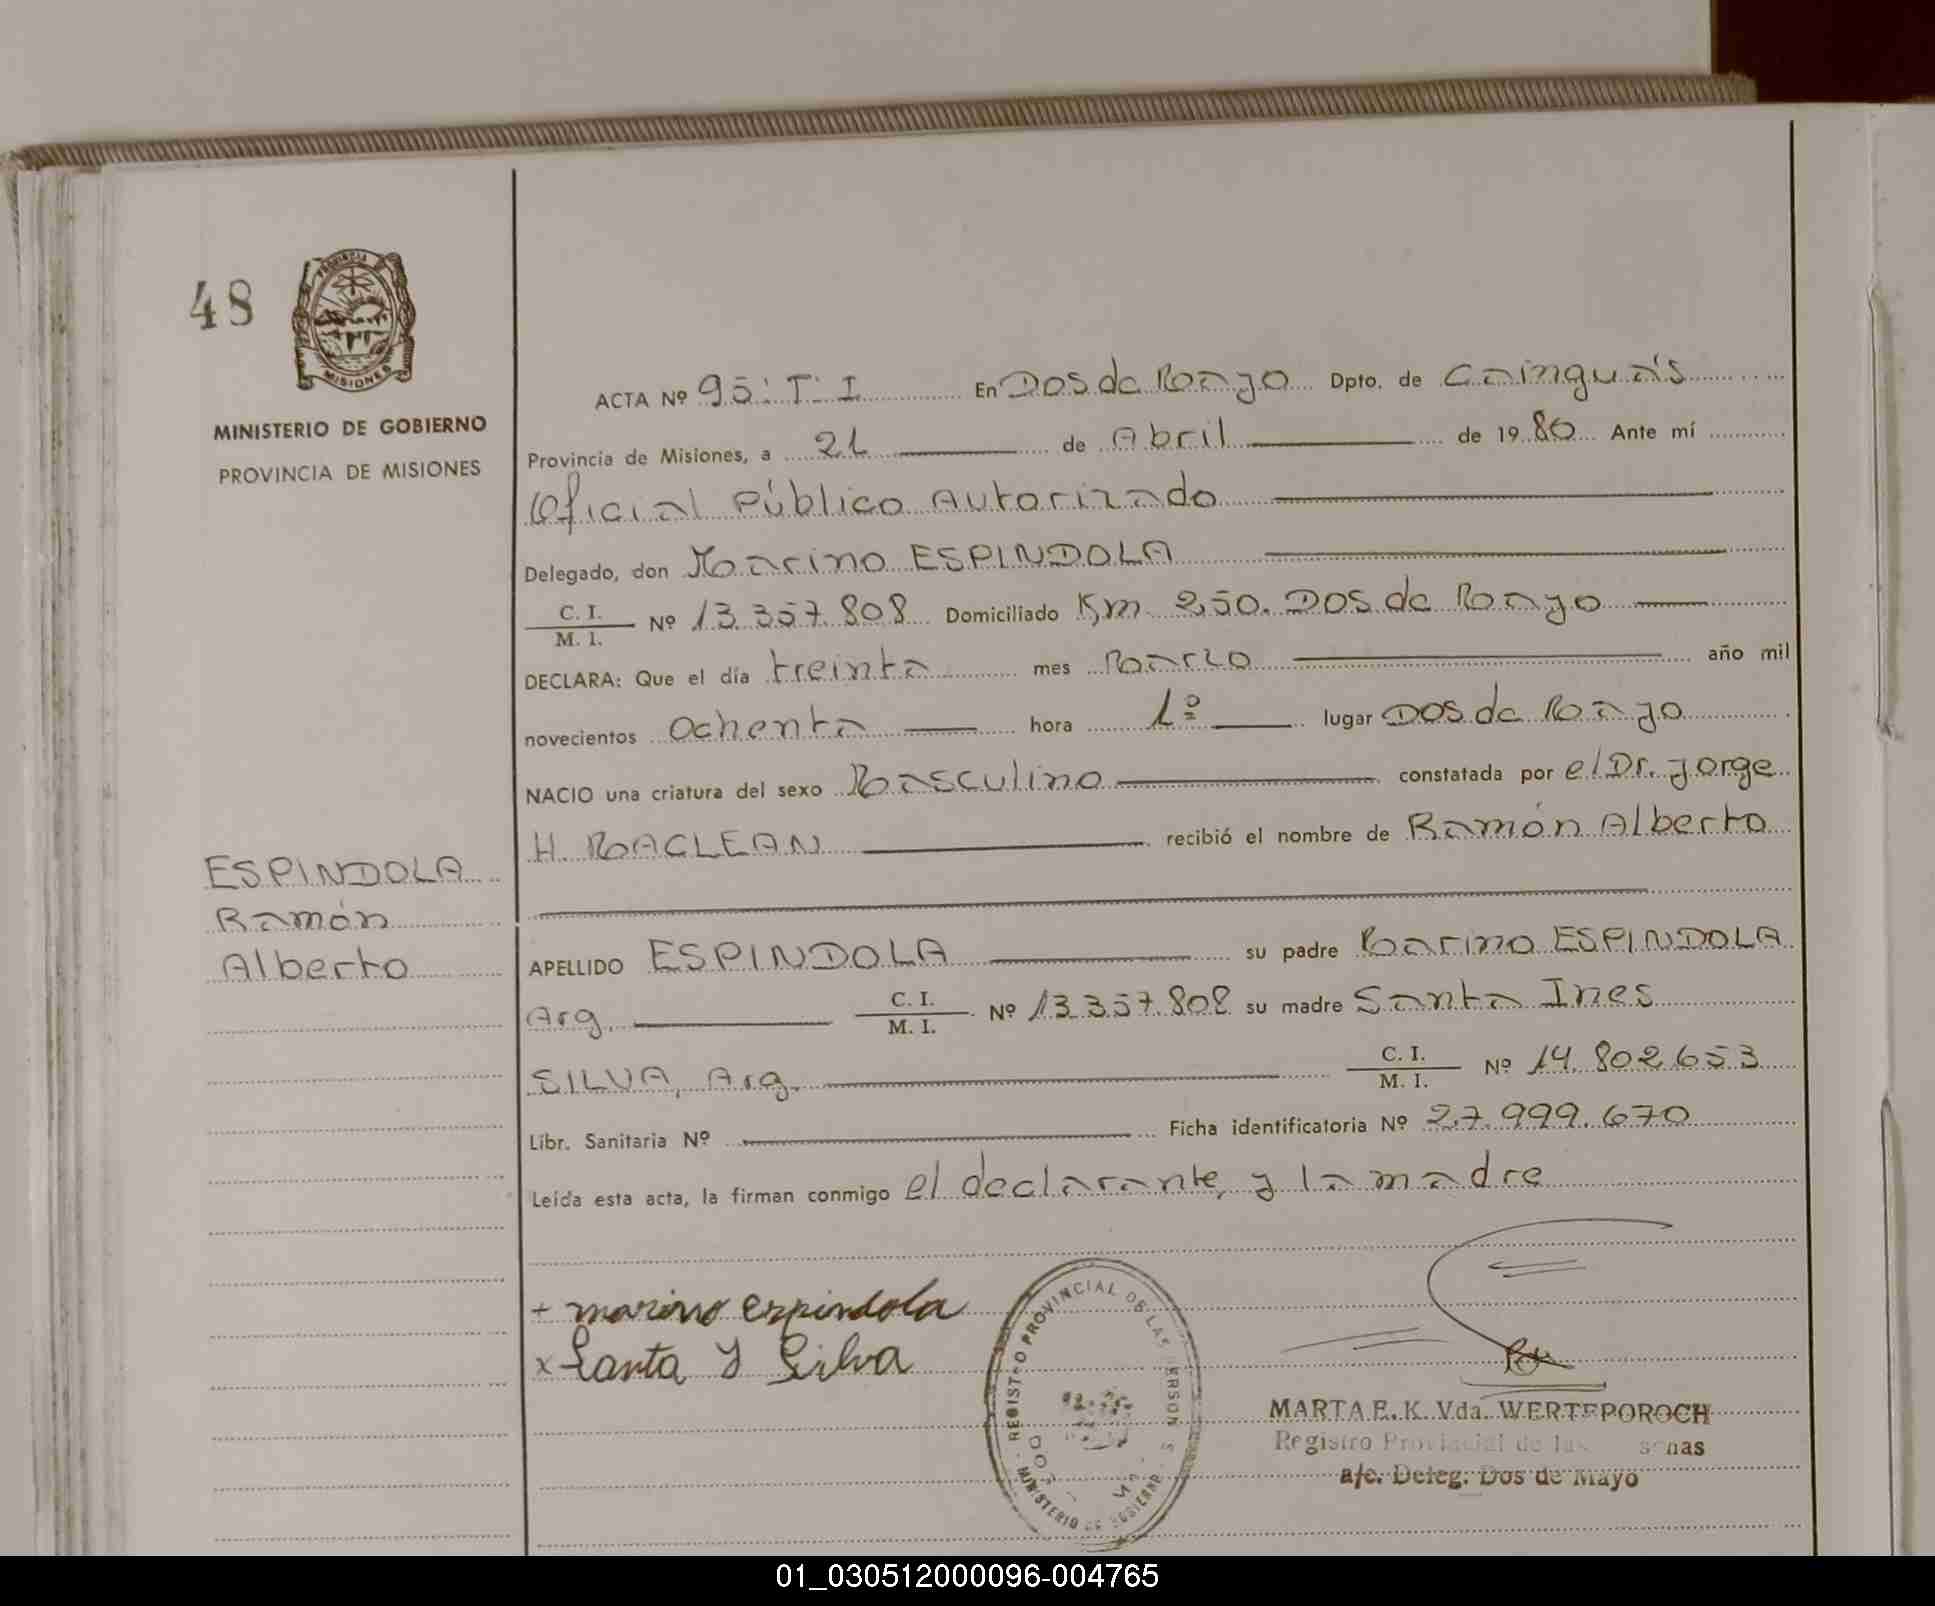 48
PROVINCIA
MISIONES
MINISTERIO DE GOBIERNO
PROVINCIA DE MISIONES
ESPINDOLA
Ramón
Alberto
ACTA Nº 95: T: I En Dos de Mayo Dpto. de Cainguás
Provincia de Misiones, a 21 de Abril de 1980 Ante mí
Oficial Público Autorizado
Delegado, don Marino ESPINDOLA
C. I.
M. I. Nº 13.357.808 Domiciliado Km 250. Dos de Mayo
DECLARA: Que el día treinta mes Marzo año mil
novecientos ochenta hora 1º lugar Dos de Mayo
NACIO una criatura del sexo Masculino constatada por el Dr. Jorge
H. MACLEAN recibió el nombre de Ramón Alberto
APELLIDO ESPINDOLA su padre Marino ESPINDOLA
Arg. C. I.
M. I. Nº 13.357.808 su madre Santa Ines
SILVA, Arg. C. I.
M. I. Nº 14.802.653
Libr. Sanitaria Nº Ficha identificatoria Nº 27.999.670
Leída esta acta, la firman conmigo el declarante, y la madre
+ marino espindola
x Santa Y Silva
REGISTRO PROVINCIAL DE LAS
MINISTERIO DE
MARTA E. K. Vda. WERTEPOROCH
Registro Provincial de las
a/c. Deleg. Dos de Mayo
01_030512000096-004765